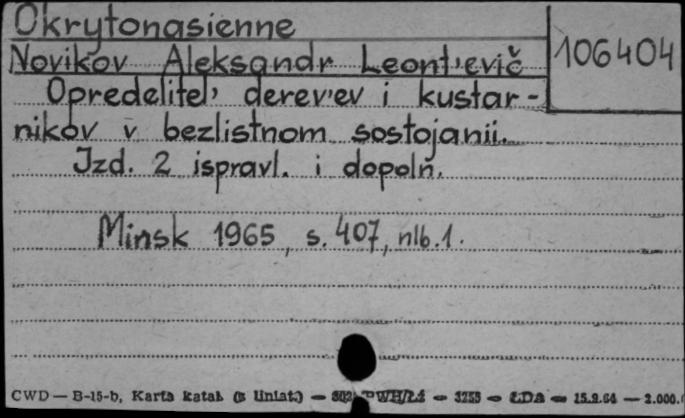 Okrytonasienne
106404
Novikov Aleksandr Leont'evič
Opredelitel' derev'ev i kustar-
nikov v bezlistnom sostojanii.
Izd. 2 ispravl. i dopoln.
Minsk 1965, s. 407, nlb. 1.
CWD — B-15-b, Karta katal. (z liniat.) — PWH/Łż — 3255 — ŁDA — 15.9.64 — 2.000.